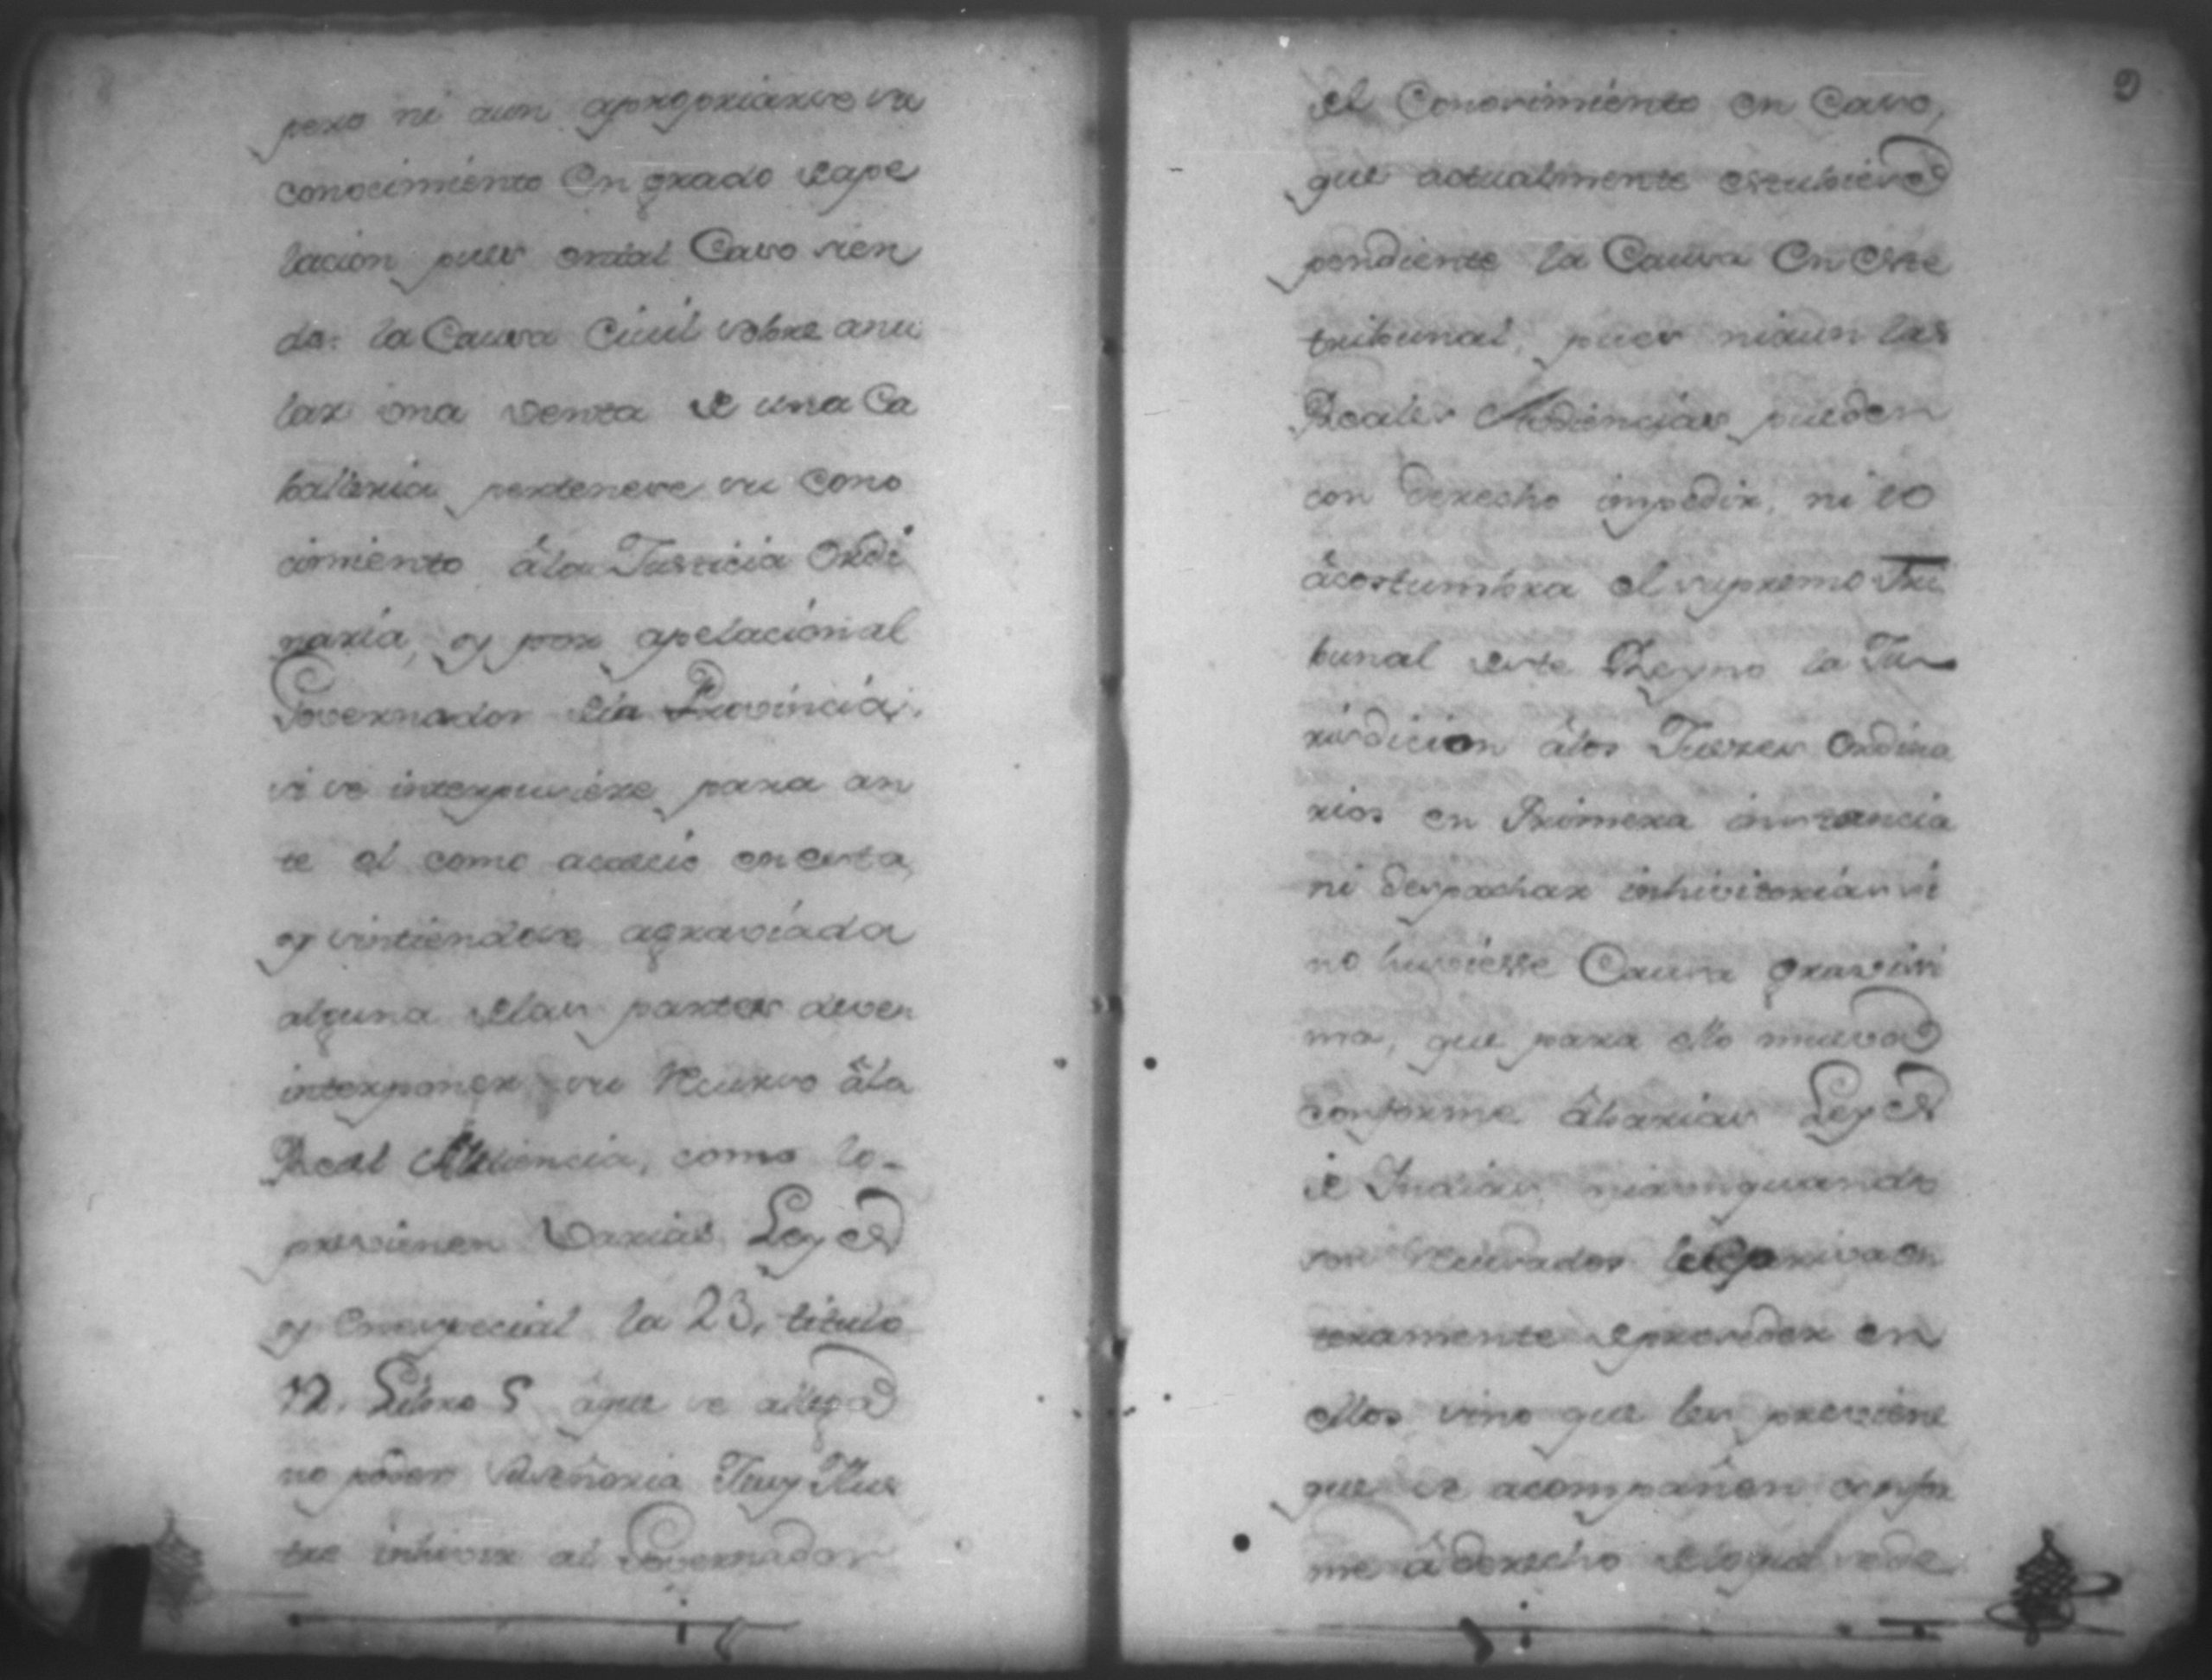 pero ni aun apropriarse su
conocimiento en grado de ape
lacion pues en tal Caso sien
do la Causa Civil sobre anu
lar una venta de una Ca
balleria pertenese su cono
cimiento âla Justicia Ordi
naria, y por apelacion al
Governador dela Provincia,
si se interpusiere para an
te el como acaecio en esta,
y sintiendose agraviada
alguna delas partes deven
interponer su Recurso âla
Real Audiencia, como lo
previenen varias Leyes
y en especial la 23, titulo
12. Libro 5 âque se allega
no poder Vuseñoria Muy Ilus
tre inhivir al Governador
9
del Conosimiento en Caso,
que actualmente estubiese
pendiente la Causa en este
tribunal, pues ni aun las
Reales Audiencias pueden
con derecho impedir, ni lo
âcostumbra el supremo Tri
bunal deste Reyno la Ju
risdicion âlos Jueses Ordina
rios en Primera instancia
ni despachar inhivitorias si
no huviesse Causa gravisi
ma, que para ello mueva
conforme âbarias Leyes
de Indias, ni aun quando
son Recusados les priva en
teramente de proceder en
ellos sino que les previene
que se acompañen confor
me â derecho delo que se de